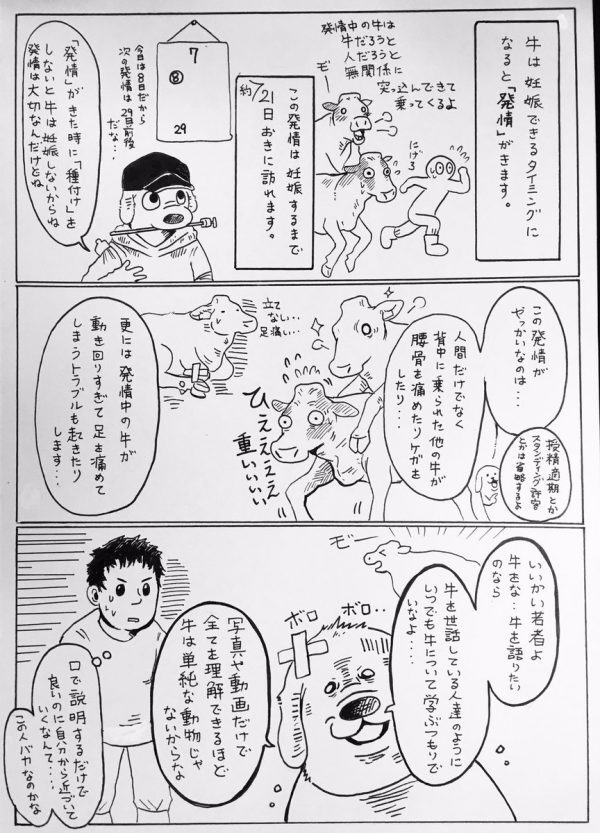 牛は妊娠できるタイミングに
なると「発情」がきます。
発情中の牛は
牛だろうと
人だろうと
無関係に
突っ込んできて
乗ってくるよ
モー
にげろ
この発情は妊娠するまで
約21日おきに訪れます。
7
8
29
今日は8日だから
次の発情は29日前後
だな…
「発情」がきた時に「種付け」を
しないと牛は妊娠しないからね
発情は大切なんだけどね
この発情が
やっかいなのは…
授精適期とか
スタンディング許容
とかは省略するよ
人間だけでなく
背中に乗られた他の牛が
腰骨を痛めたりケガを
したり…
ひええええ
重いいいい
立て
ない…
足痛い…
更には発情中の牛が
動き回りすぎて足を痛めて
しまうトラブルも起きたり
します…
いいかい若者よ
牛をな…牛を語りたい
のなら
モー
牛を世話している人達のように
いつでも牛について学ぶつもりで
いなよ…
ボロ…
ボロ
写真や動画だけで
全てを理解できるほど
牛は単純な動物じゃ
ないからな
口で説明するだけで
良いのに自分から近づいて
いくなんて…
この人バカなのかな